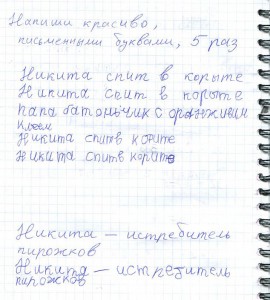 Напиши красиво,
письменными буквами, 5 раз
Никита спит в корыте
Никита спит в корыте
папа батончик с оранживим
Никита спитв корите
Никита спитв корите
Никита — истребитель
пирожков
Никита — истребитель
пирожков